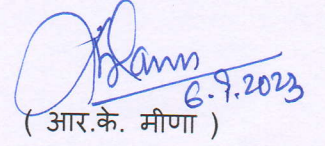 6.9.2023
( आर.के. मीणा )